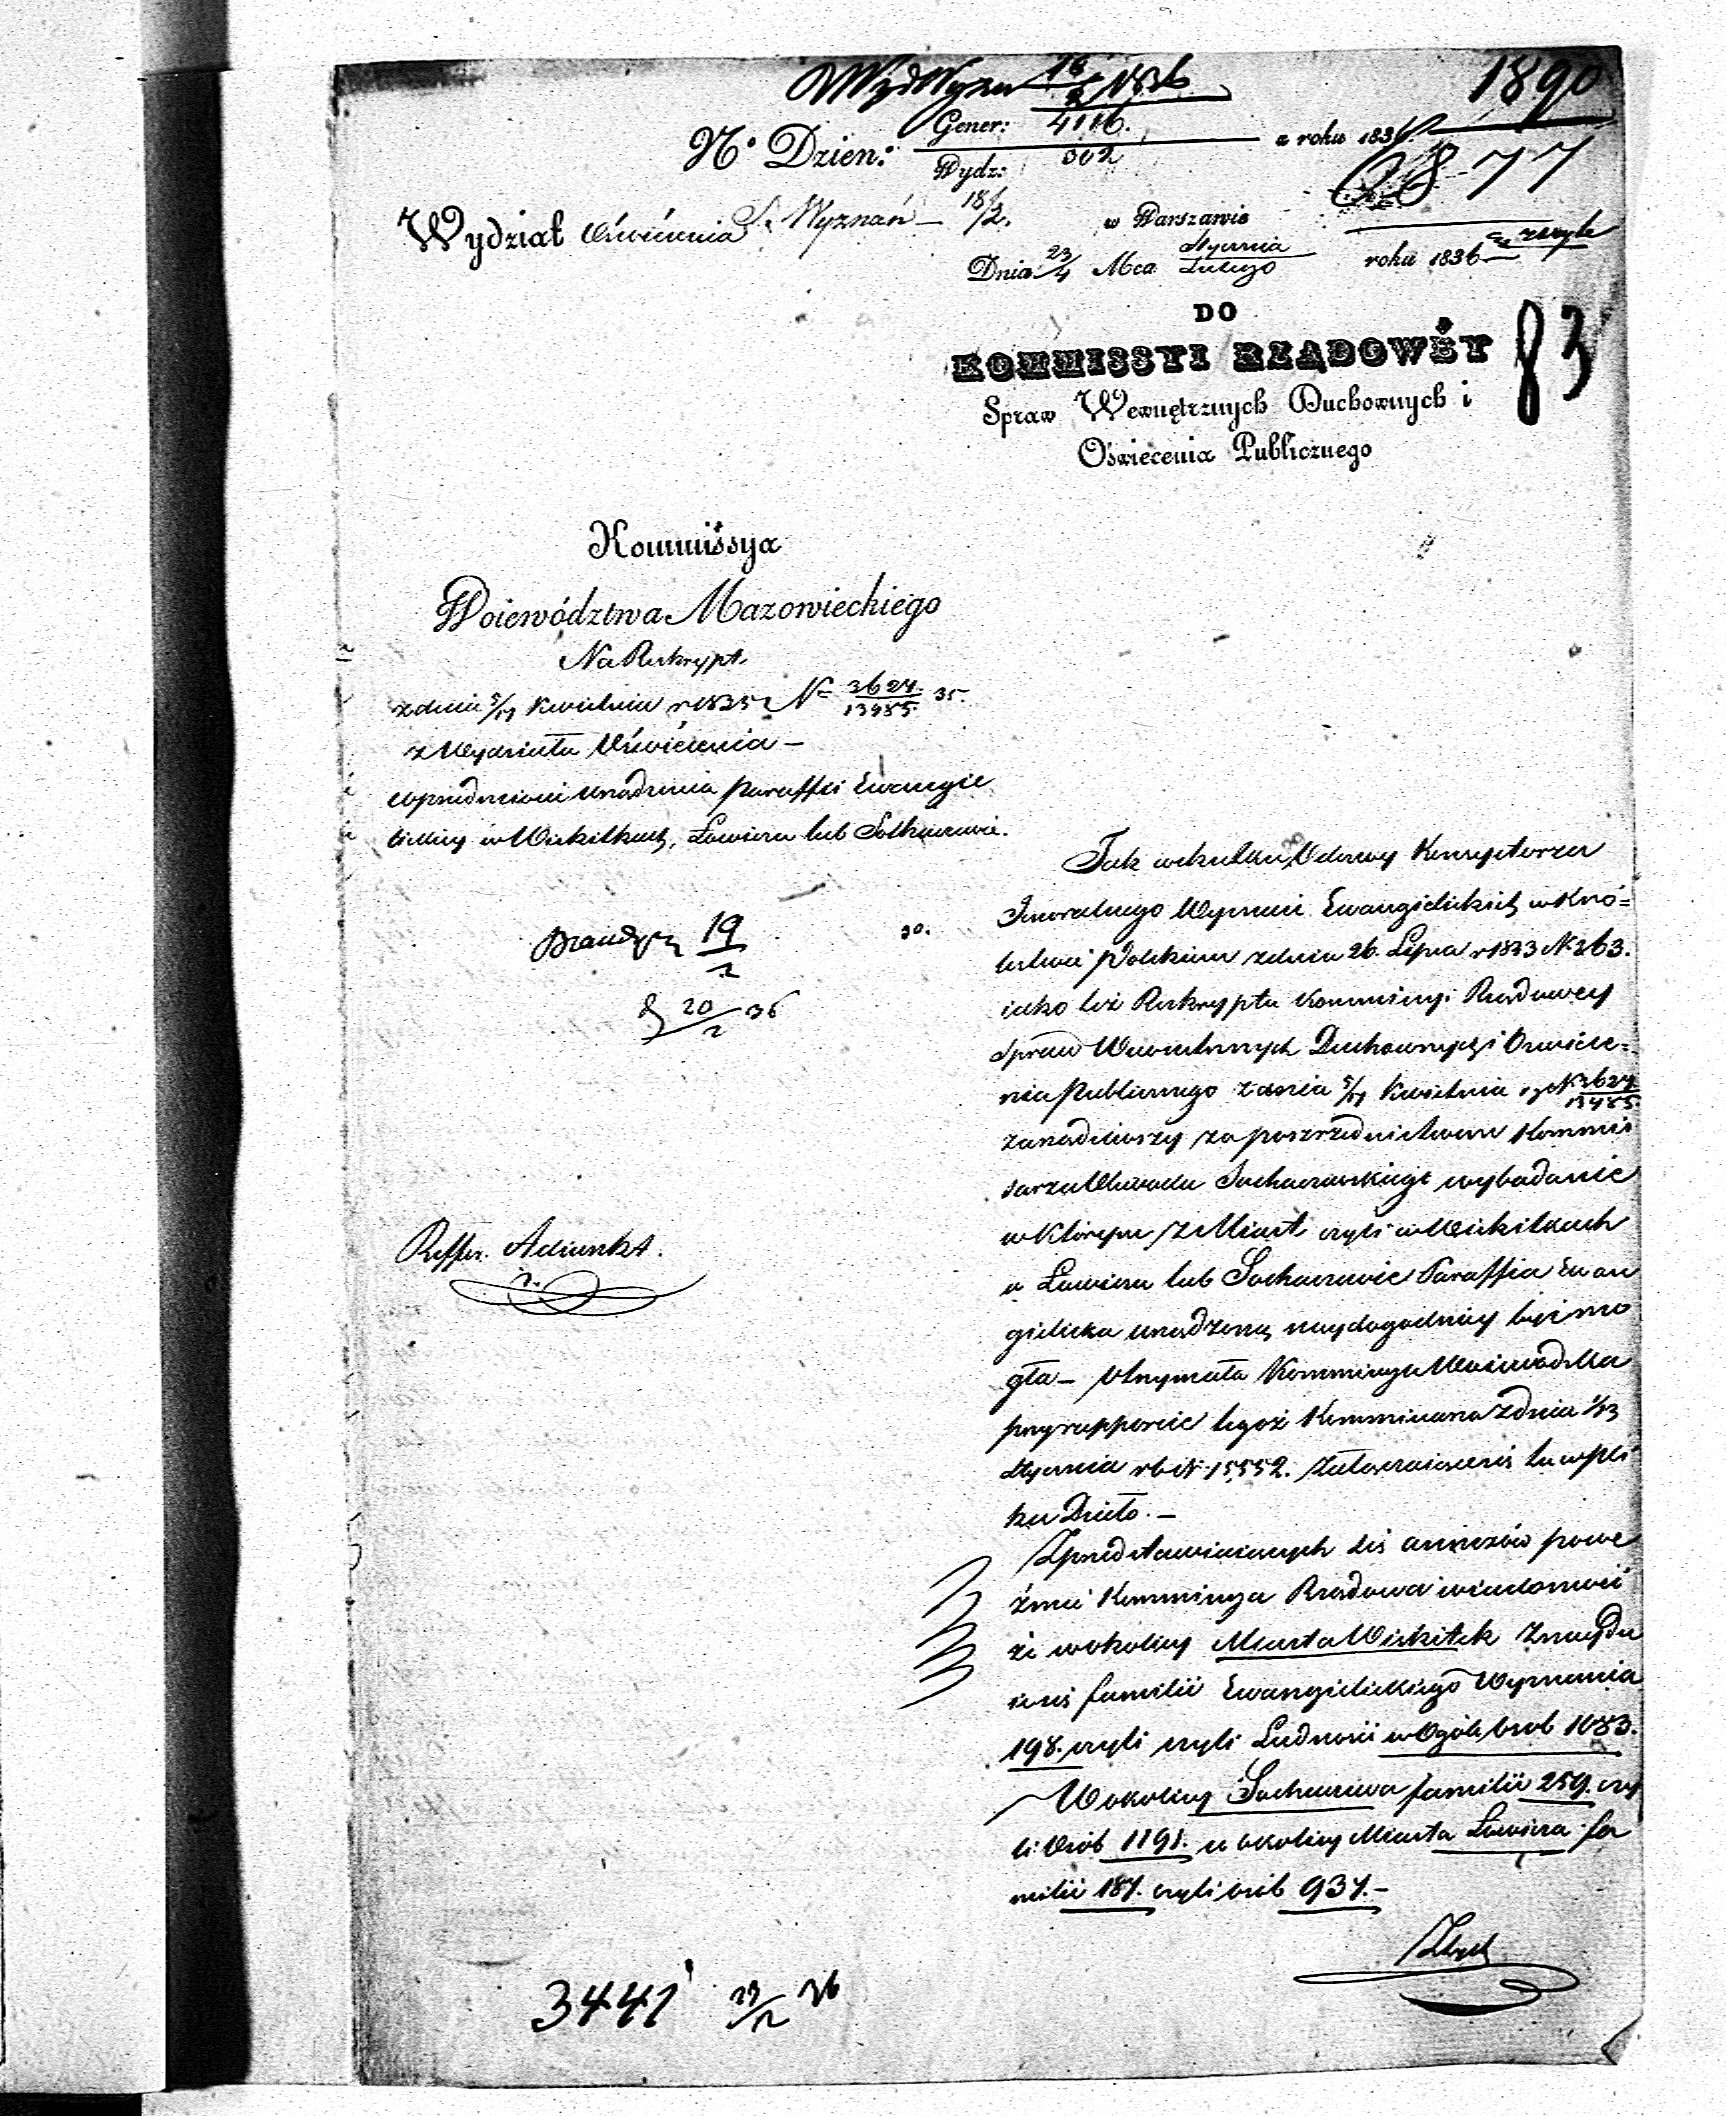 1890
Gener: 4116.
N.° Dzien: a roku 1836.
Wydz: 302
2877
Wydział Oświecenia i Wyznań 18/2.
w Warszawie
Dnia 23/4 Mca Stycznia Lutego roku 1836
DO
KOMMISSYI RZĄDOWÉY
83
Spraw Wewnętrznych Duchownych i
Oświecenia Publicznego
Kommissya
Woiewództwa Mazowieckiego
Na Reskrypt
z dnia 5/17 Kwietnia r 1835 N 3624/13485 35.
z Wydziału Oświecenia –
w przedmiocie urządzenia Paraffii Ewangie
lickiey w Wiskitkach, Łowiczu lub Sochaczewie.
19/2
20/2 36
Reffer. Adiunkt.
Jak w skutku Odezwy Konsystorza
Jeneralnego Wyznań Ewangielickich w Kró=
lestwie Polskiem z dnia 26. Lipca r 1833 N 263.
iako też Reskryptu Kommissyi Rządowey
Spraw Wewnętrznych Duchownych i Oświece=
nia Publicznego z dnia 5/17 Kwietnia N 3624/13485
zarządziwszy za pośrzednictwem Kommis
sarza Obwodu Sochaczewskiego wybadanie
w którym z Miast czyli w Wiskitkach
w Łowiczu lub Sochaczewie Paraffia Ewan
gielicka urządzoną naydogodniey być mo
gła – Otrzymała Kommissya Woiewódzka
przy rapporcie tegoż Kommissarza z dnia 1/13
Stycznia r b N 15552. załączaiące się tu w pli
ku Dzieło. –
Z przedstawiaiących się annexów powe
źmie Kommissya Rządowa wiadomość
że w okolicy Miasta Wiskitek znaydu
ie się familii Ewangielickiego Wyznania
198. czyli czyli Ludności w Ogóle Osób 1083.
W okolicy Sochaczewa familii 259. czy
li Osób 1191. w okolicy Miasta Łowicza fa
milii 187. czyli osób 937. –
3441 29/2 36